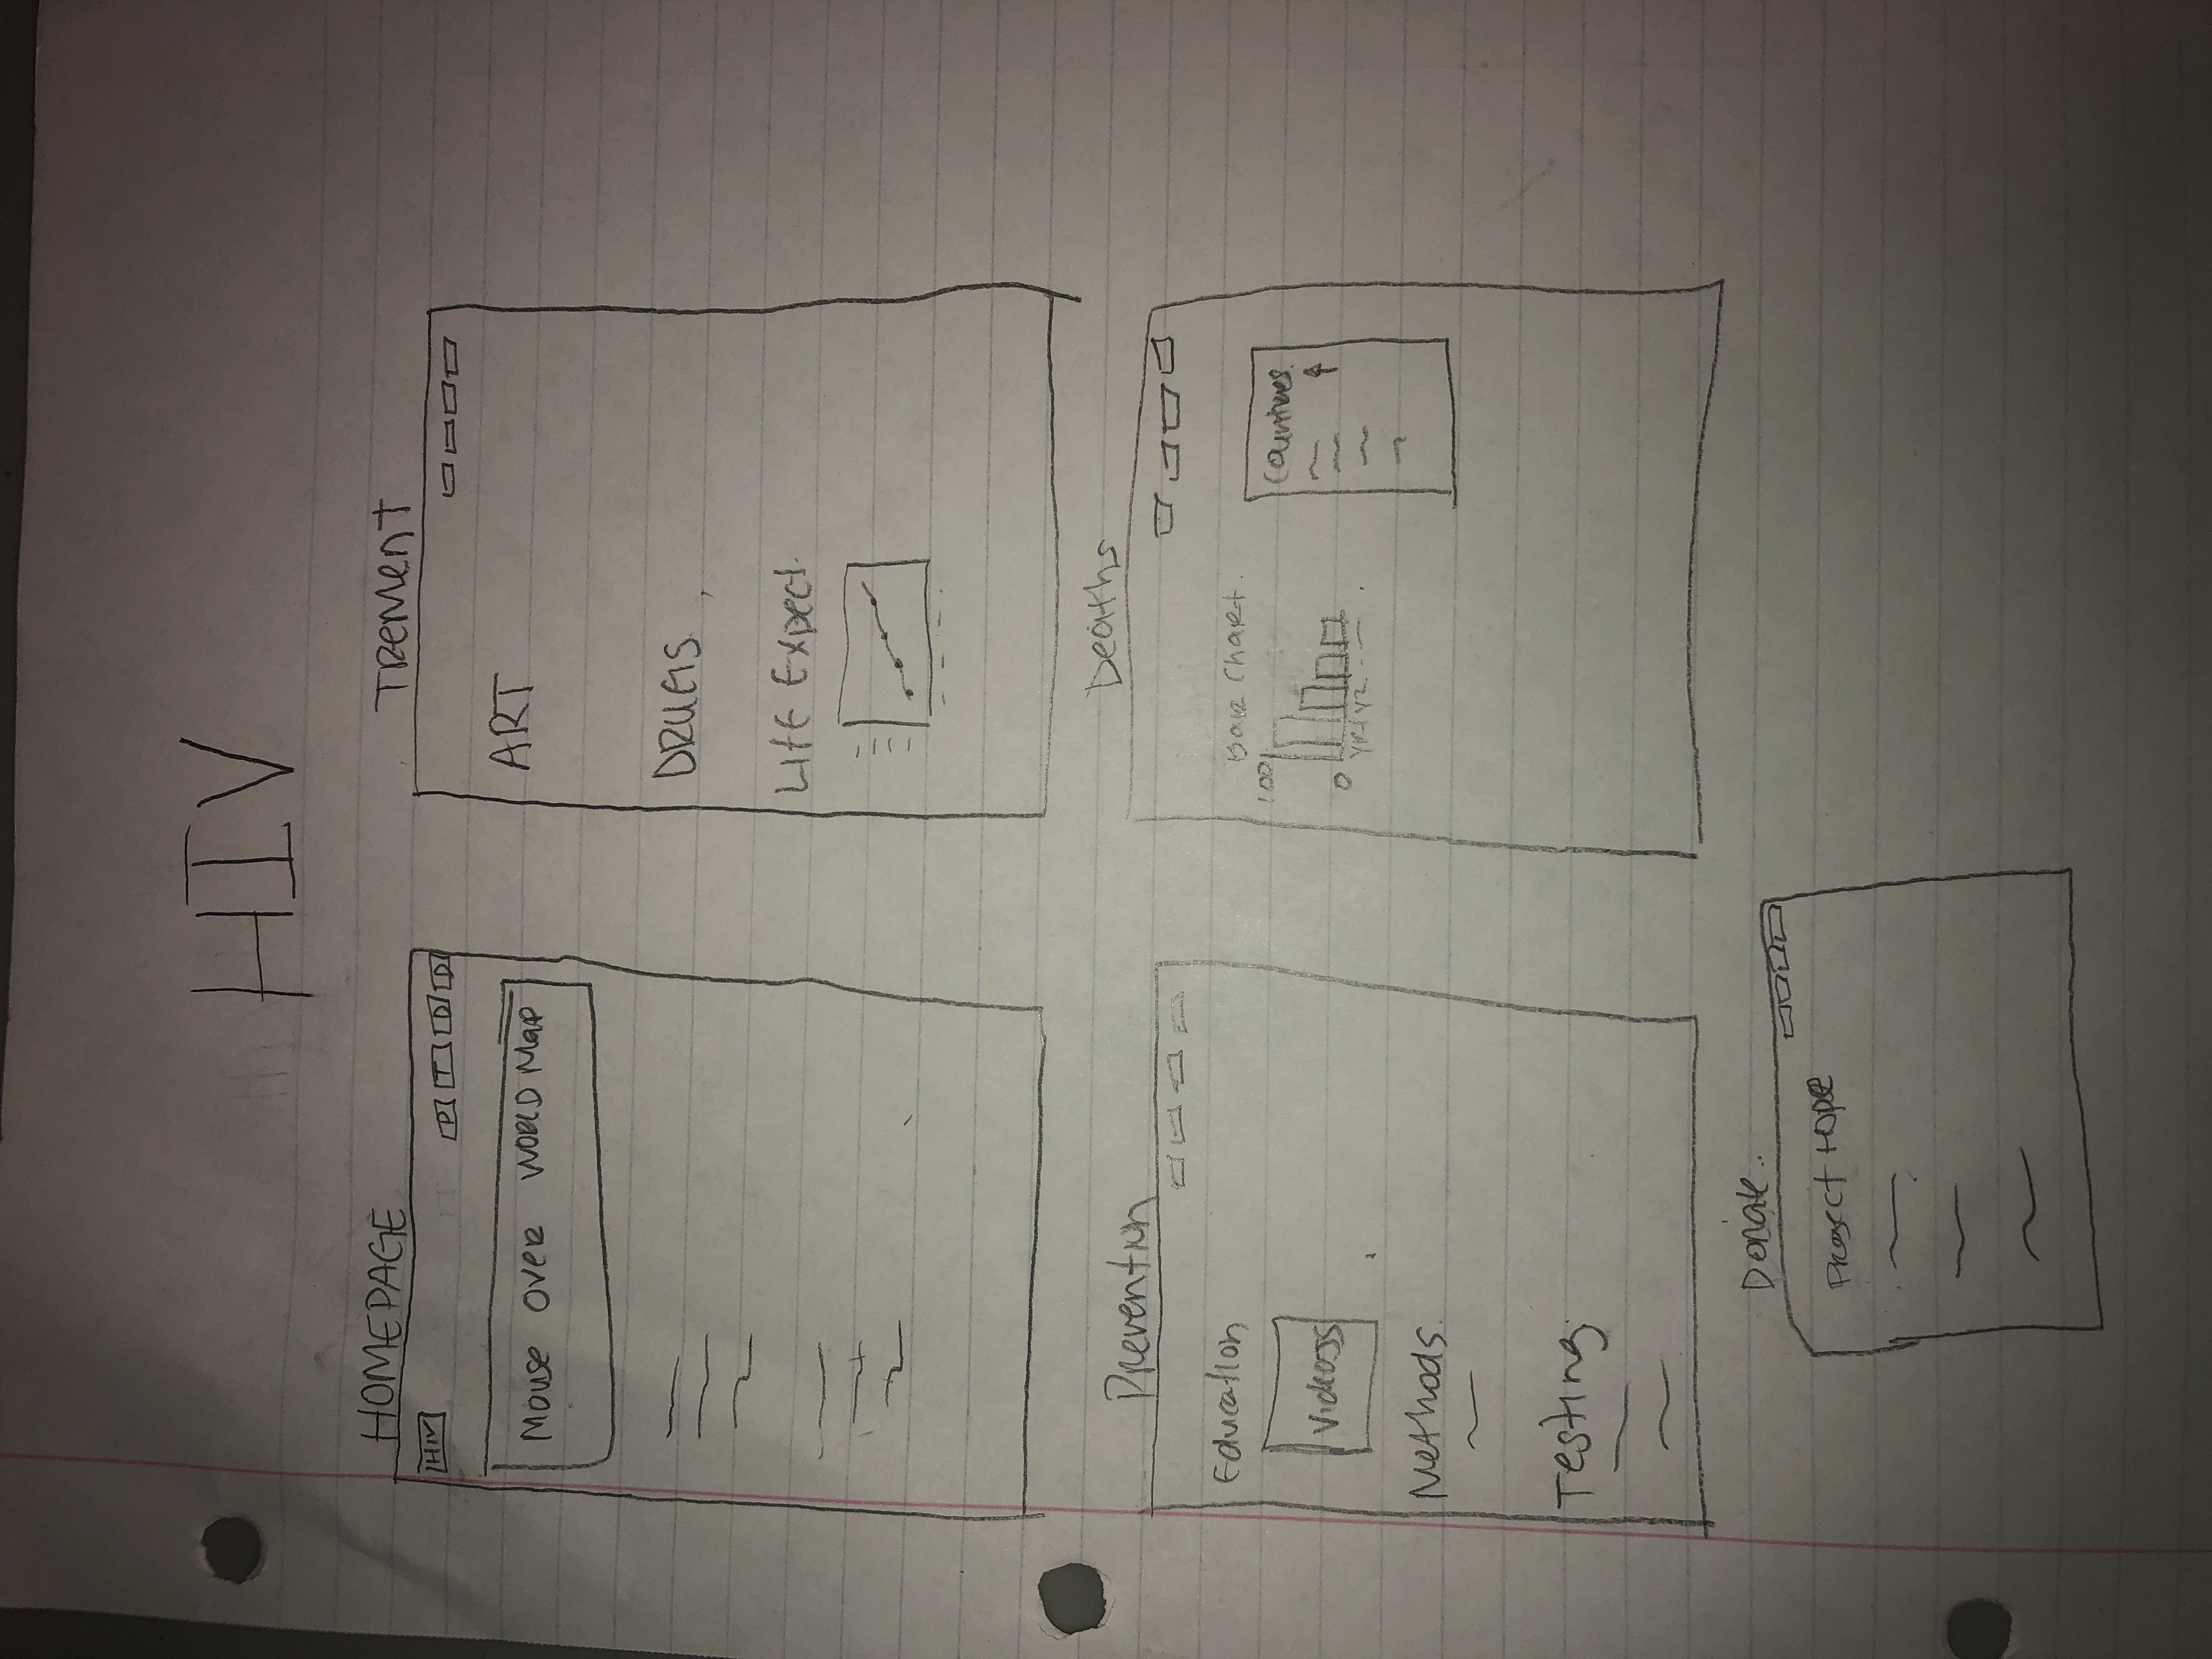 HIV
HOMEPAGE
HIV P T D D
Mouse over WORLD Map
TREMENT
ART
DRUGS
Life Expect.
Prevention
Education
Videos
Methods
Testing
Deaths
Bar Chart.
100
0
YR1 YR2
Countries
Donate
Project Hope